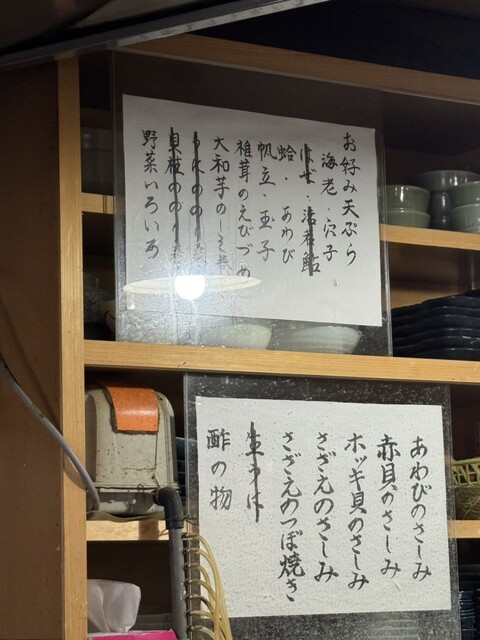 お好み天ぷら
海老・穴子
はぜ・活若鮎
蛤・あわび
帆立・玉子
椎茸のえびづめ
大和芋のしそ巻
うにののり巻
貝柱ののり巻
野菜いろいろ
あわびのさしみ
赤貝のさしみ
ホッキ貝のさしみ
さざえのさしみ
さざえのつぼ焼き
生うに
酢の物